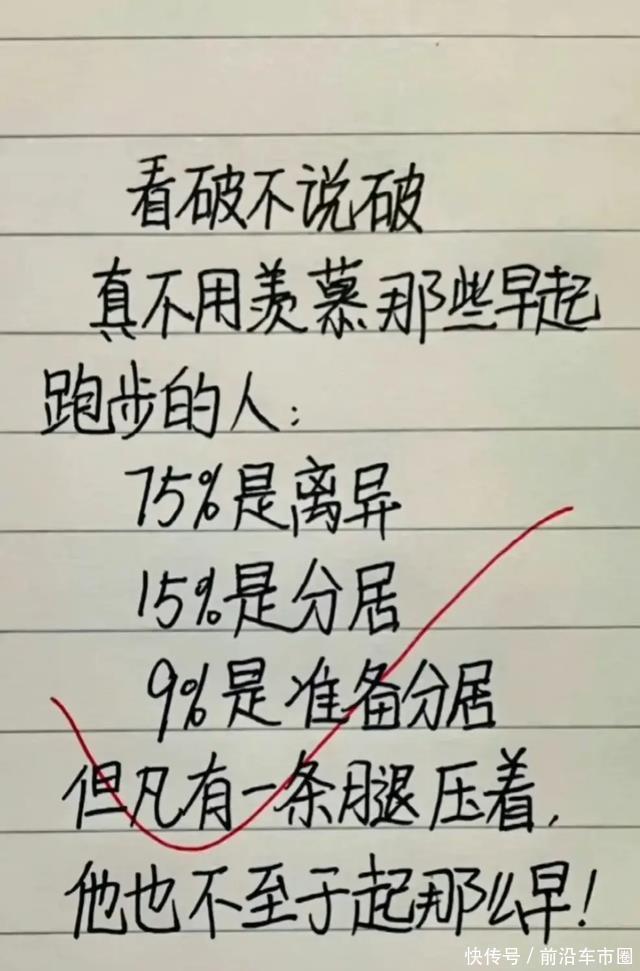 看破不说破
真不用羡慕那些早起
跑步的人:
75%是离异
15%是分居
9%是准备分居
但凡有一条腿压着,
他也不至于起那么早!
快传号/前沿车市圈